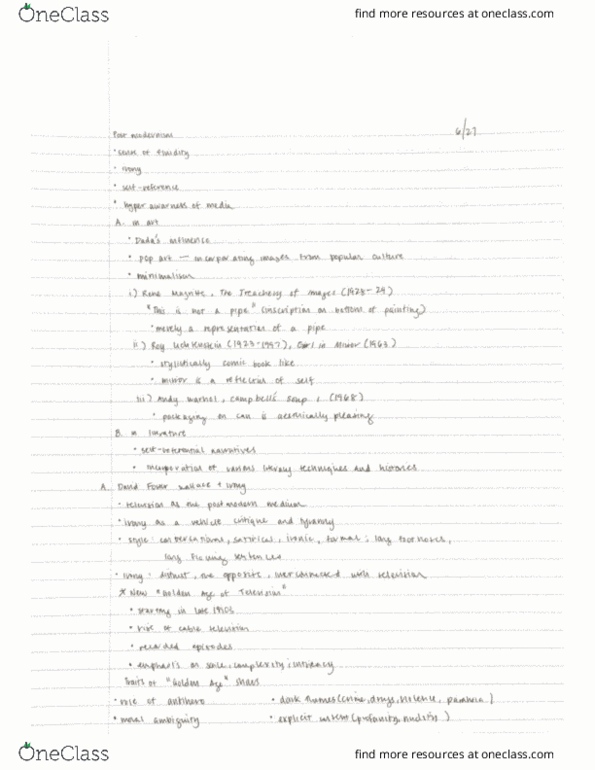 OneClass
find more resources at oneclass.com
6/27
Post modernism
• sense of
• irony
• self-reference
• hyper awarness of media
A. in art
• Dada's influence
• pop art — incorporating images from popular culture
• minimalism
i) René Magritte, The Treachery of Images (1928-29)
"This is not a pipe" (inscription on bottom of painting)
• merely a representation of a pipe
ii) Roy Lichtenstein (1923-1997), Girl in Mirror (1963)
• stylistically comic book like
• mirror is a reflection of self
iii) Andy Warhol, Campbell's Soup 1 (1968)
• packaging on can is aesthically pleasing
B. in literature
• self-referential narratives
• incorporation of various literary techniques and histories
A. David Foster Wallace + irony
• television as the postmodern medium
• irony as a vehicle critique and tyranny
• style: satirical, ironic, formal; long footnotes,
long sentences
• irony: distrust, the opposite, interconnected with television
* New "Golden Age of Television"
• starting in late 1990s
• rise of cable television
• recorded episodes
• emphasis on scale, complexity, intimacy
Traits of "Golden Age" shows
• role of antihero • dark themes (crime, drugs, violence, )
• moral ambiguity • explicit (profanity, nudity )
OneClass
find more resources at oneclass.com